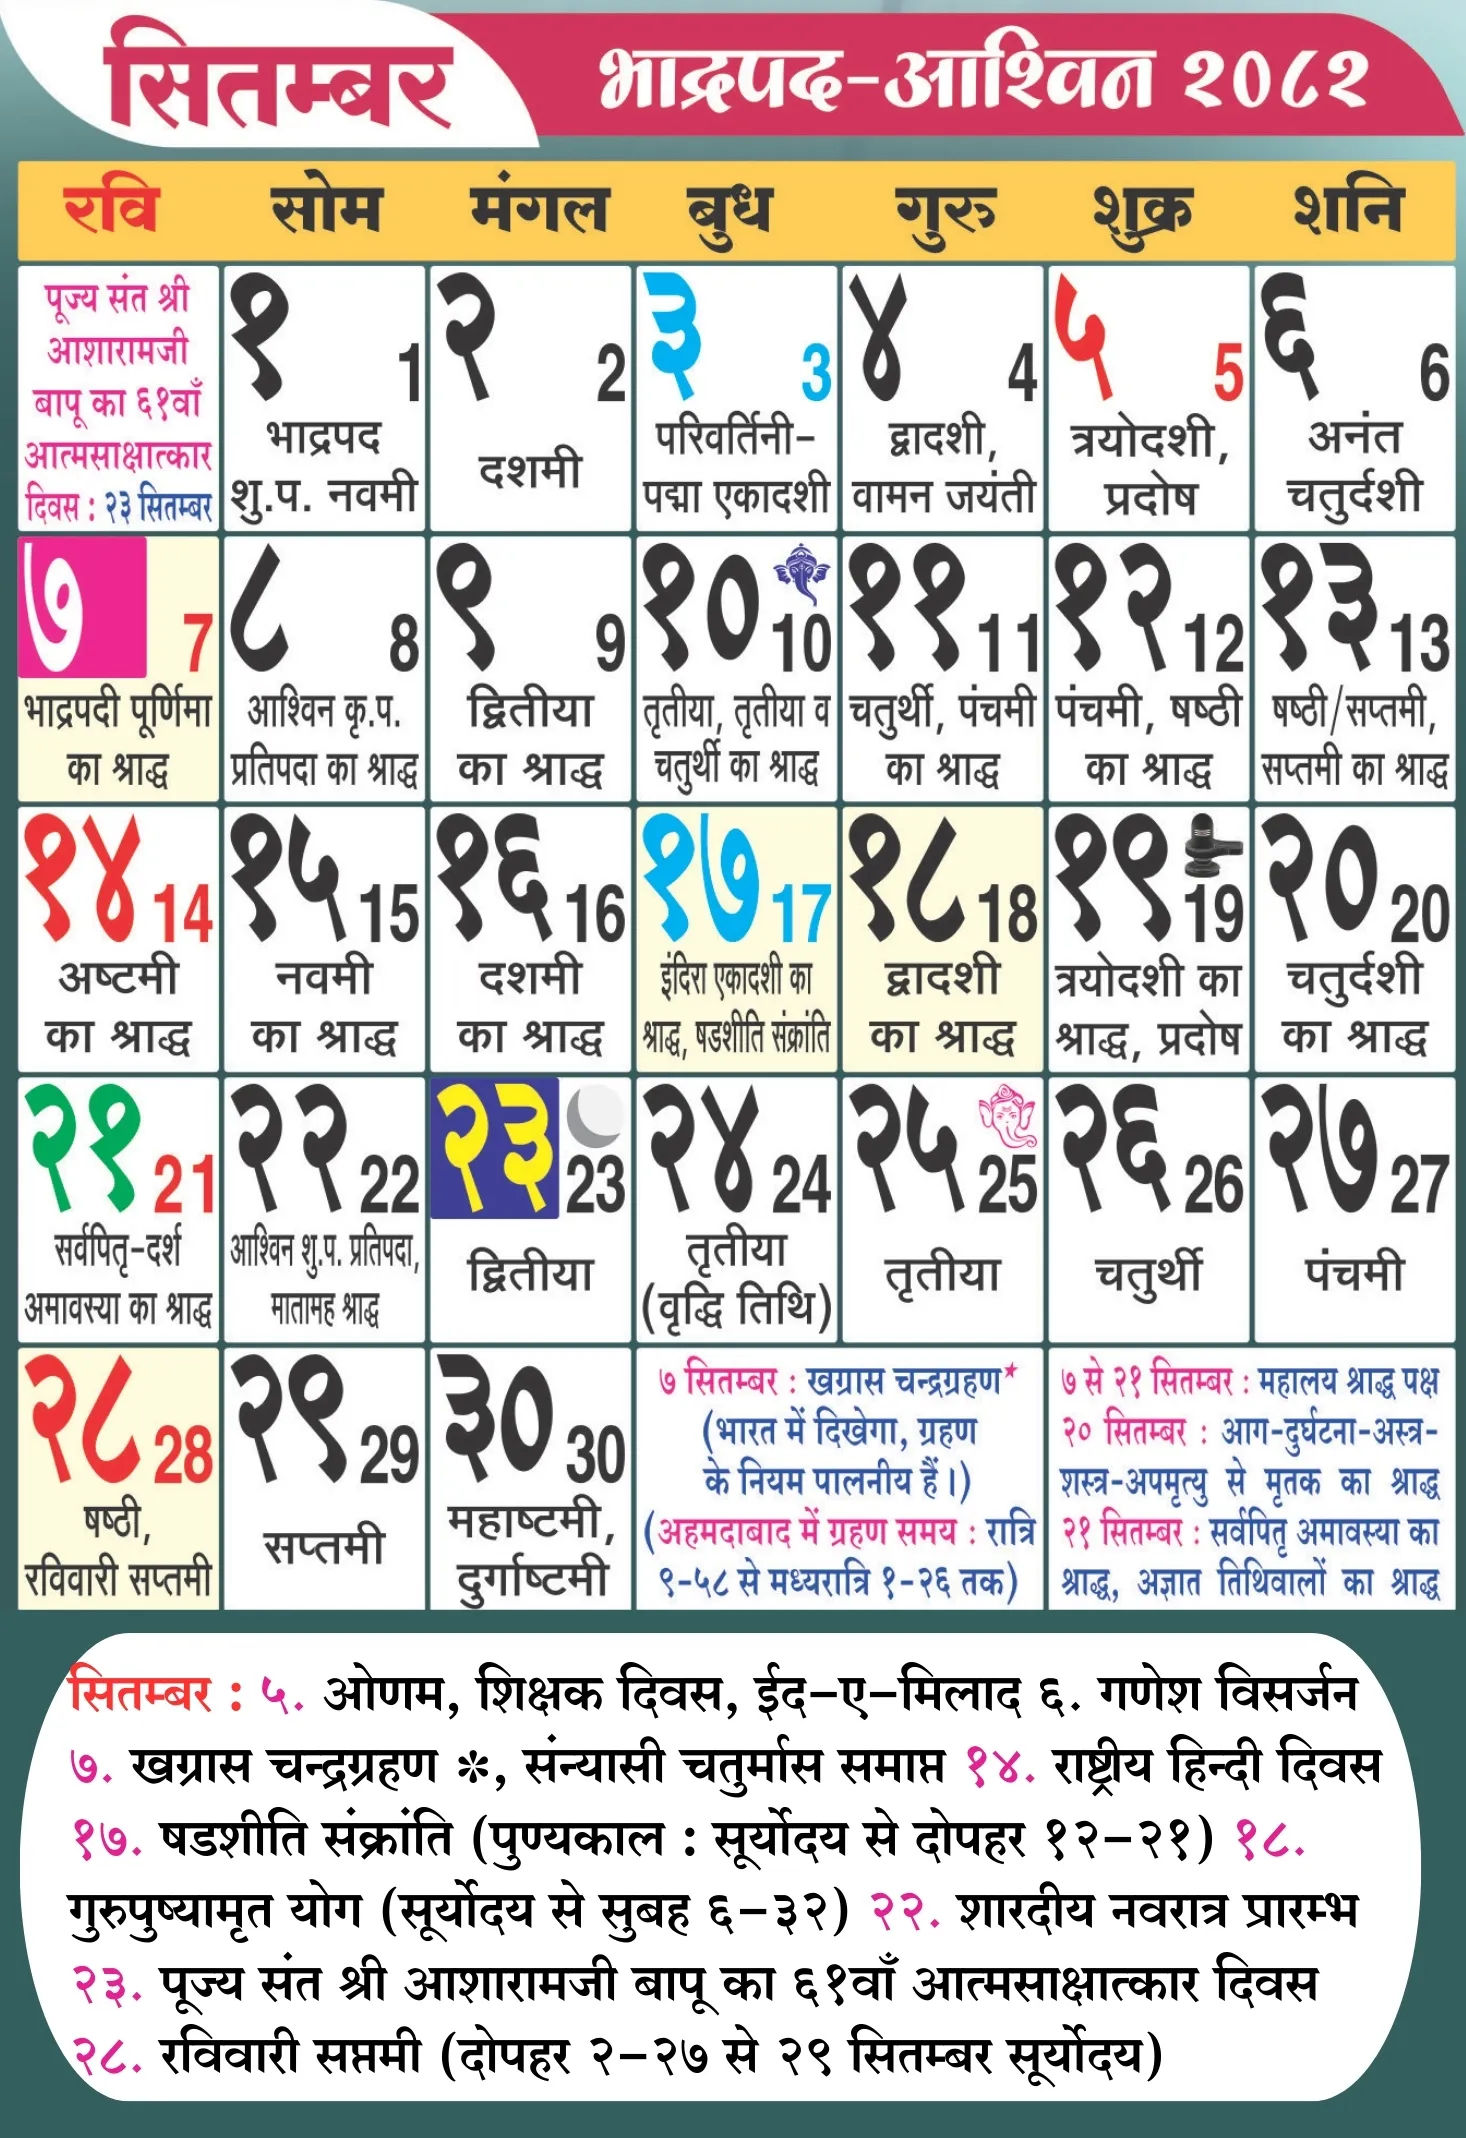 सितम्बर
भाद्रपद-आश्विन २०८२
रवि सोम मंगल बुध गुरु शुक्र शनि
पूज्य संत श्री
आशारामजी
बापू का ६१वाँ
आत्मसाक्षात्कार
दिवस : २३ सितम्बर
१ 1
भाद्रपद
शु.प. नवमी
२ 2
दशमी
३ 3
परिवर्तिनी-
पद्मा एकादशी
४ 4
द्वादशी,
वामन जयंती
५ 5
त्रयोदशी,
प्रदोष
६ 6
अनंत
चतुर्दशी
७ 7
भाद्रपदी पूर्णिमा
का श्राद्ध
८ 8
आश्विन कृ.प.
प्रतिपदा का श्राद्ध
९ 9
द्वितीया
का श्राद्ध
१० 10
तृतीया, तृतीया व
चतुर्थी का श्राद्ध
११ 11
चतुर्थी, पंचमी
का श्राद्ध
१२ 12
पंचमी, षष्ठी
का श्राद्ध
१३ 13
षष्ठी/सप्तमी,
सप्तमी का श्राद्ध
१४ 14
अष्टमी
का श्राद्ध
१५ 15
नवमी
का श्राद्ध
१६ 16
दशमी
का श्राद्ध
१७ 17
इंदिरा एकादशी का
श्राद्ध, षडशीति संक्रांति
१८ 18
द्वादशी
का श्राद्ध
१९ 19
त्रयोदशी का
श्राद्ध, प्रदोष
२० 20
चतुर्दशी
का श्राद्ध
२१ 21
सर्वपितृ-दर्श
अमावस्या का श्राद्ध
२२ 22
आश्विन शु.प. प्रतिपदा,
मातामह श्राद्ध
२३ 23
द्वितीया
२४ 24
तृतीया
(वृद्धि तिथि)
२५ 25
तृतीया
२६ 26
चतुर्थी
२७ 27
पंचमी
२८ 28
षष्ठी,
रविवारी सप्तमी
२९ 29
सप्तमी
३० 30
महाष्टमी,
दुर्गाष्टमी
७ सितम्बर : खग्रास चन्द्रग्रहण*
(भारत में दिखेगा, ग्रहण
के नियम पालनीय हैं।)
(अहमदाबाद में ग्रहण समय : रात्रि
९-५८ से मध्यरात्रि १-२६ तक)
७ से २१ सितम्बर : महालय श्राद्ध पक्ष
२० सितम्बर : आग-दुर्घटना-अस्त्र-
शस्त्र-अपमृत्यु से मृतक का श्राद्ध
२१ सितम्बर : सर्वपितृ अमावस्या का
श्राद्ध, अज्ञात तिथिवालों का श्राद्ध
सितम्बर : ५. ओणम, शिक्षक दिवस, ईद-ए-मिलाद ६. गणेश विसर्जन
७. खग्रास चन्द्रग्रहण ✽, संन्यासी चतुर्मास समाप्त १४. राष्ट्रीय हिन्दी दिवस
१७. षडशीति संक्रांति (पुण्यकाल : सूर्योदय से दोपहर १२-२१) १८.
गुरुपुष्यामृत योग (सूर्योदय से सुबह ६-३२) २२. शारदीय नवरात्र प्रारम्भ
२३. पूज्य संत श्री आशारामजी बापू का ६१वाँ आत्मसाक्षात्कार दिवस
२८. रविवारी सप्तमी (दोपहर २-२७ से २९ सितम्बर सूर्योदय)